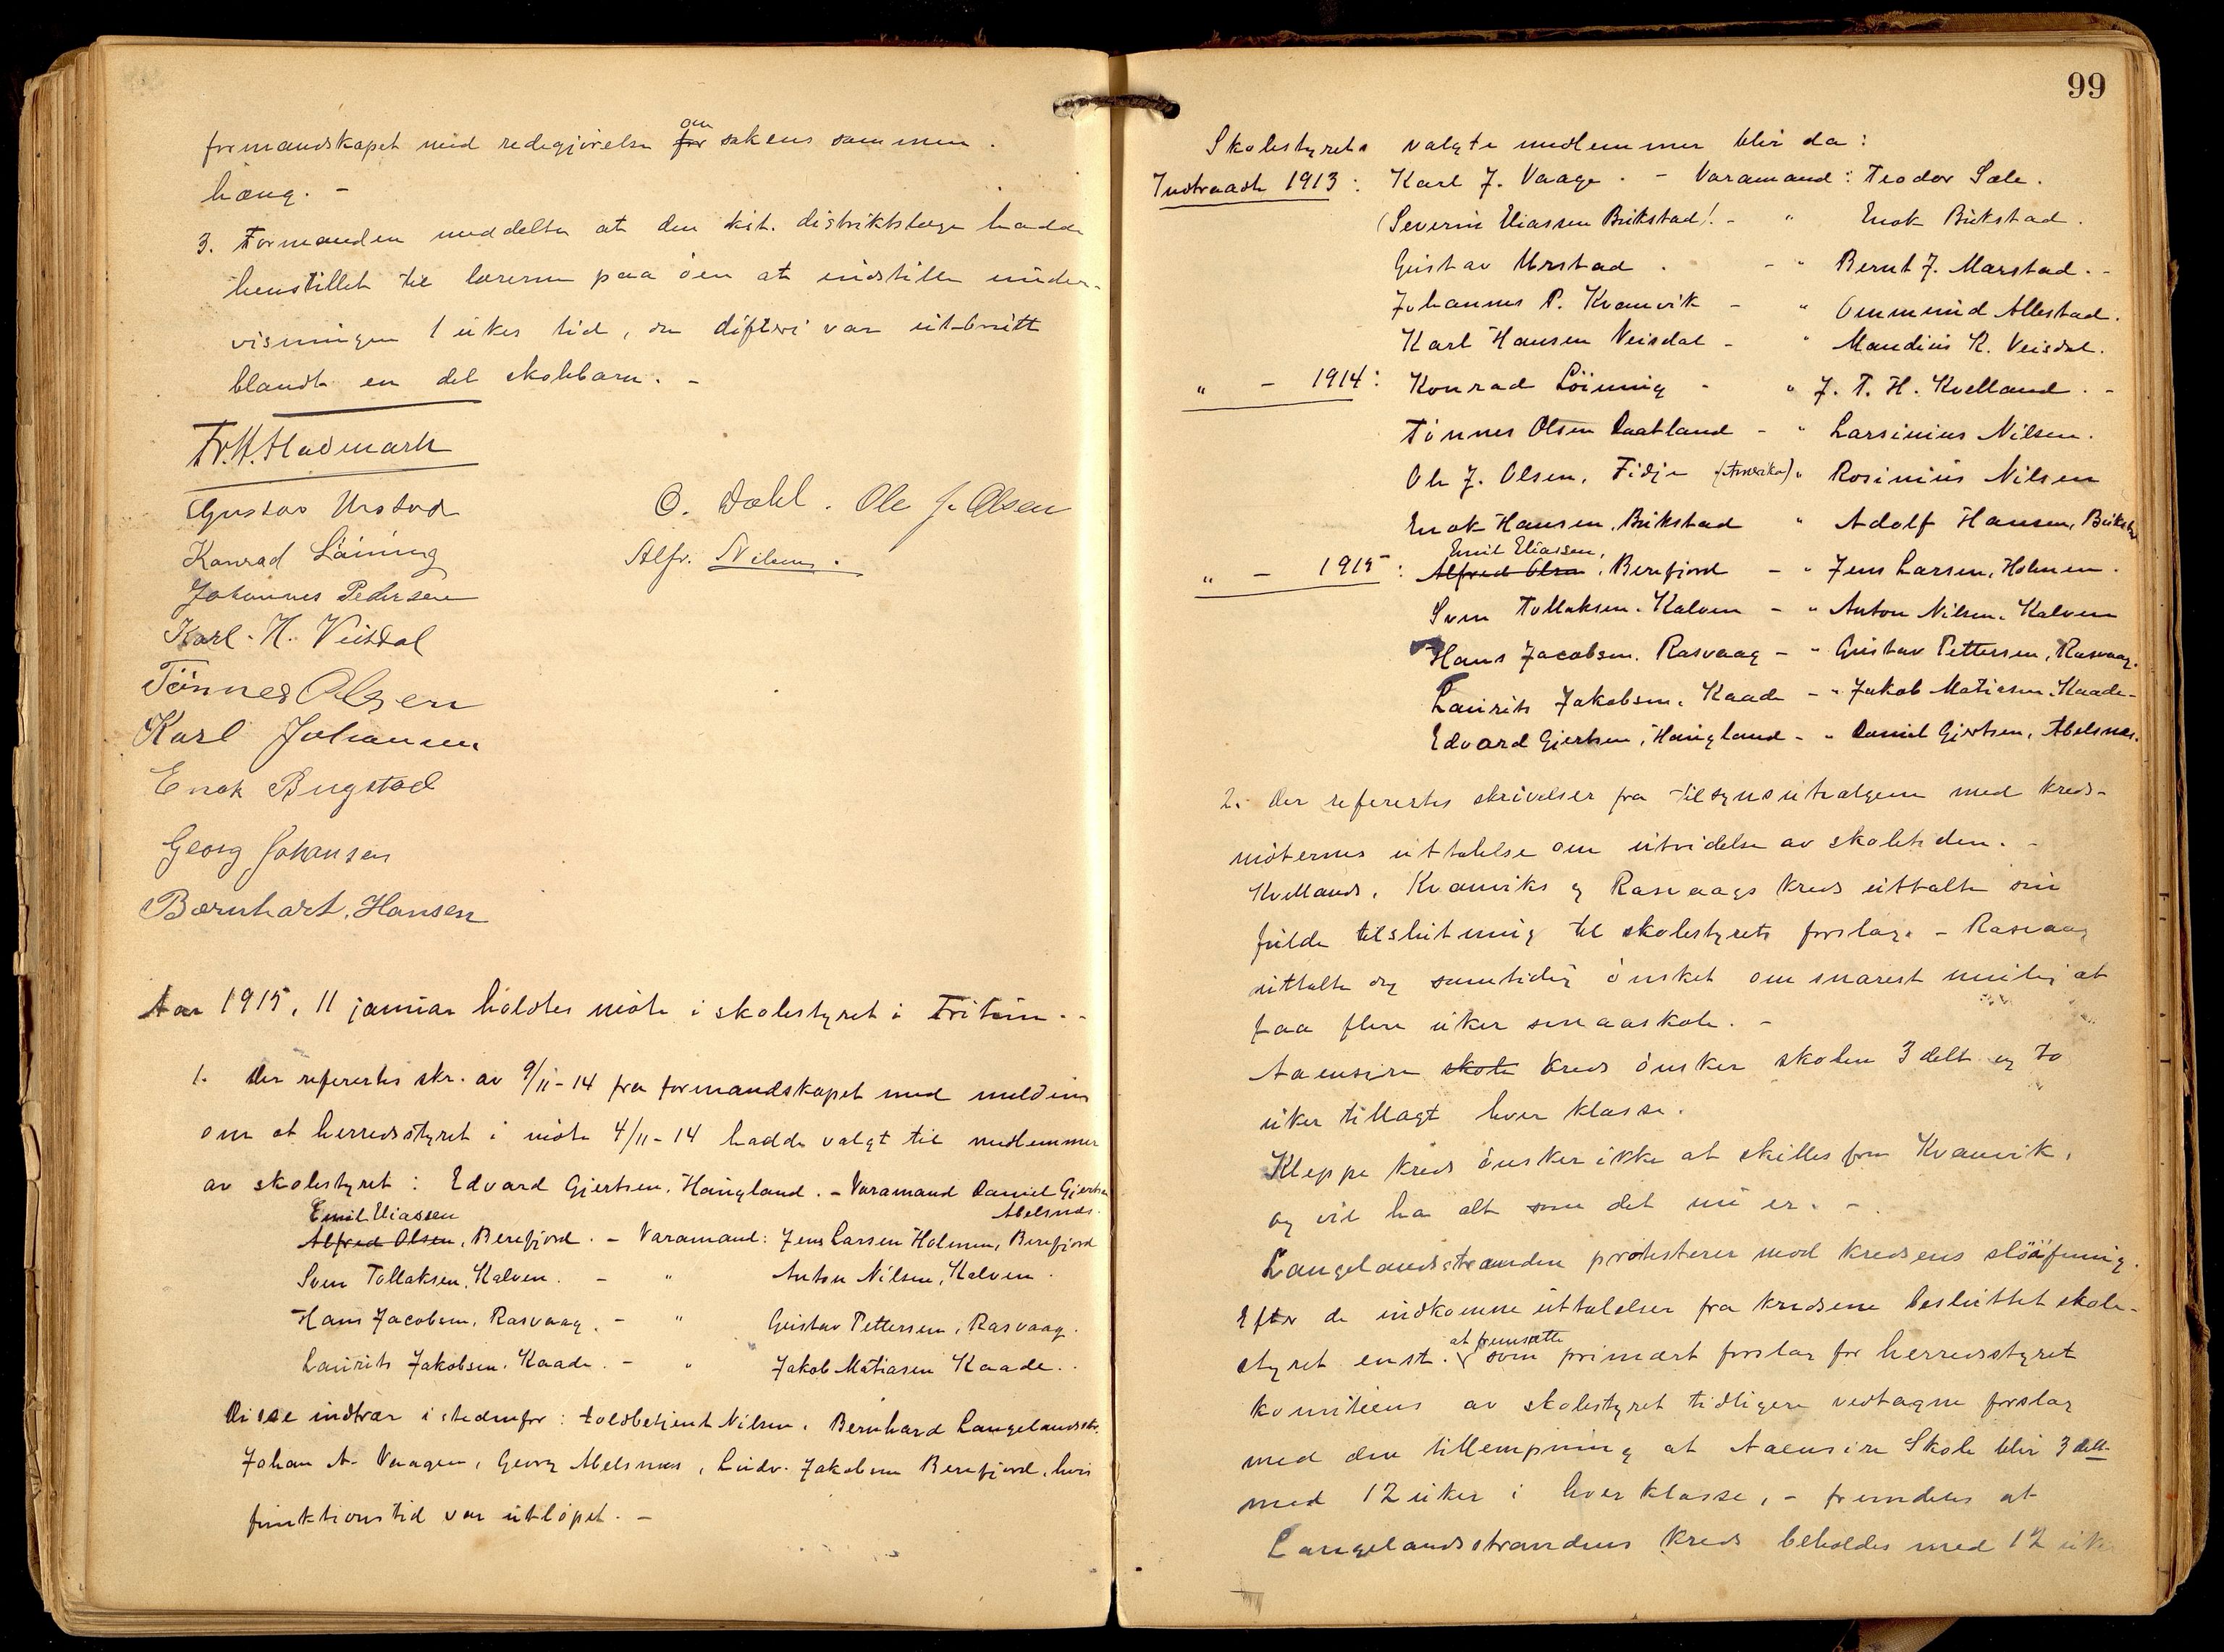 formandskapet med redegjörelse for om sakens sammen-
hæng. -
3. Formanden meddelte at den kst. distriktslæge hadde
henstillet til lærerne paa öen at indstille under-
visningen 1 ukes tid, da difteri var utbrutt
blandt en del skolebarn. -
Fr. H. Hadmark
Gustav Urstad
O. Dahl. Ole J. Olsen
Konrad Löining
Alfr. Nilsen.
Johannes Pedersen
Karl. H. Veisdal
Tönnes Olsen
Karl Johansen
Enok Bugstad
Georg Johansen
Bærnhart. Hansen
Aar 1915, 11 januar holdtes möte i skolestyret i Fritun. -
1. Der refertes skr. av 9/11-14 fra formandskapet med melding
om at herredsstyret i möte 4/11-14 hadde valgt til medlemmer
av skolestyret: Edvard Giertsen, Haugland. - Varamand Daniel Gjertsen
Emil Eliassen
Abelsnes.
Alfred Olsen, Berefjord. - Varamand: Jens Larsen Holmen, Berefjord
Sven Tollaksen, Kalven. - " Anton Nilsen, Kalven.
Hans Jacobsen, Rasvaag. - " Gustav Pettersen, Rasvaag.
Laurits Jakobsen, Kaade. - " Jakob Matiasen Kaade. .
Disse indtrær i stedenfor: toldbetjent Nilsen, Bernhard Langelandsstr.
Johan A. Vaagen, Georg Abelsnæs, Ludv. Jakobsen Berefjord, hvis
funktionstid var utlöpet. -
99
Skolestyrets valgte medlemmer blir da:
Indtraadt 1913: Karl J. Vaage. - Varamand: Teodor Sæle.
(Severin Eliassen Bukstad!. - " Enok Bukstad.
Gustav Urstad. - " Bernt J. Marstad. -
Johannes P. Kvanvik - " Ommund Allestad.
Karl Hansen Veisdal - " Maudius K. Veisdal.
" - 1914: Konrad Löining - " J. T. H. Kvelland. -
Tönnes Olsen Daatland - " Larsinius Nilsen.
Ole J. Olsen, Fidje (Amerika) " Rosinius Nilsen
Enok Hansen, Bukstad " Adolf Hansen, Bukstad
Emil Eliassen,
" - 1915: Alfred Olsen, Berefjord - " Jens Larsen, Holmen.
Sven Tollaksen, Kalven - " Anton Nilsen, Kalven
Hans Jacobsen, Rasvaag - " Gustav Pettersen, Rasvaag.
Laurits Jakobsen, Kaade - " Jakob Matiasen, Kaade -
Edvard Gjertsen, Haugland - " Daniel Gjertsen, Abelsnes.
2. Der refererteş skrivelser fra tilsynsutvalgene med kreds-
möternes uttalelse om utvidelse av skoletiden. -
Kvellands, Kvanviks og Rasvaags kreds uttalte sin
fulde tilslutning til skolestyrets forslag. - Rasvaag
uttalte og samtidig önsket om snarest mulig at
faa flere uker smaaskole. -
Aaensire skole kreds önsker skolen 3 delt og to
uker tillagt hver klasse.
Kleppe kreds önsker ikke at skilles fra Kvanvik,
og vil ha alt som det nu er. -
Langelandsstranden protesterer mod kredsens slöifning.
Efter de indkomne uttalelser fra kredsene besluttet skole-
styret enst. at fremsætte som primært forslag for herredsstyret
komiteens av skolestyret tidligere vedtagne forslag
med den tillempning at Aaensire Skole blir 3 delt
med 12 uker i hver klasse, - fremdeles at
Langelandsstrandens kreds beholdes med 12 uker